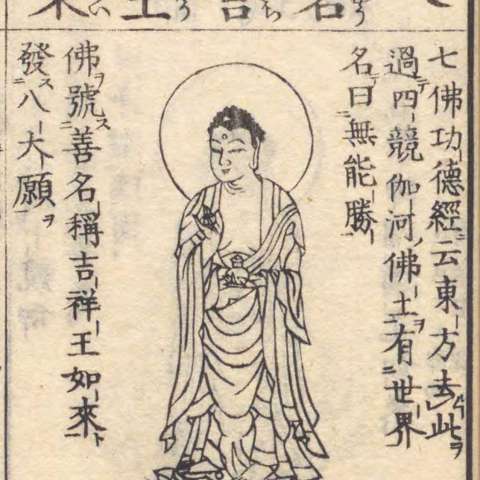 七佛功德經云東方去此
過四競伽河佛土有世界
名曰無能勝
佛號善名稱吉祥王如來
發八大願